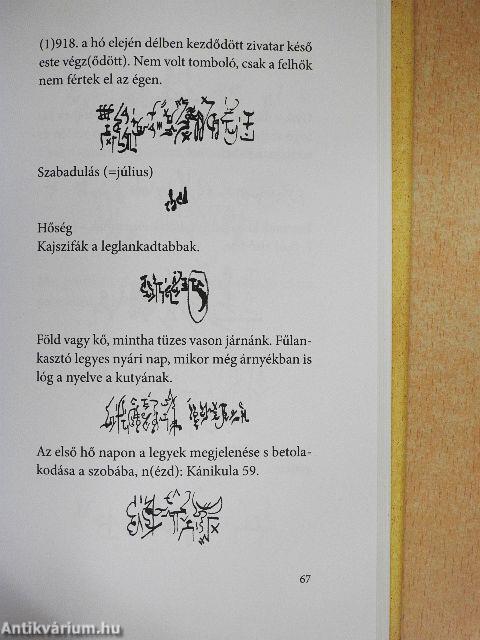 (1)918. a hó elején délben kezdődött zivatar késő
este végz(ődött). Nem volt tomboló, csak a felhők
nem fértek el az égen.
Szabadulás (=július)
Hőség
Kajszifák a leglankadtabbak.
Föld vagy kő, mintha tüzes vason járnánk. Fűlan-
kasztó legyes nyári nap, mikor még árnyékban is
lóg a nyelve a kutyának.
Az első hő napon a legyek megjelenése s betola-
kodása a szobába, n(ézd): Kánikula 59.
67
Antikvárium.hu